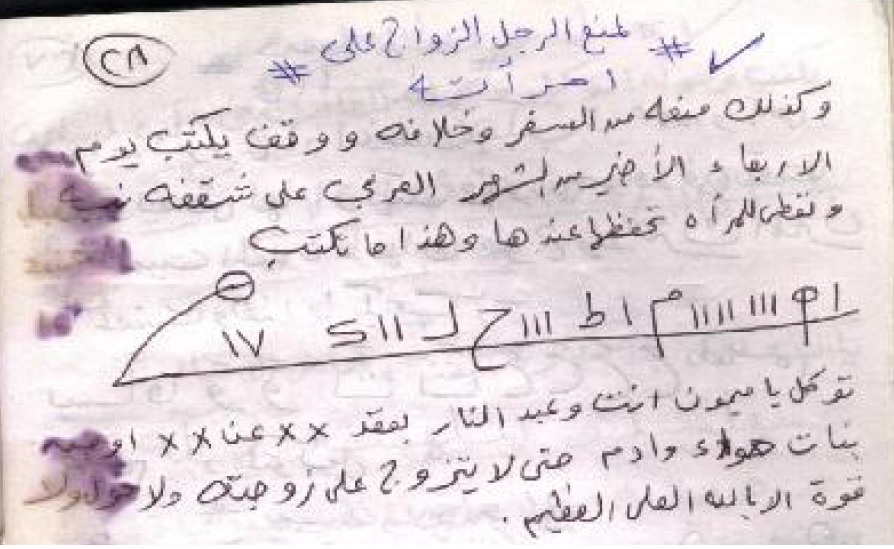 ٢٨
# لمنع الرجل الزواج على #
امرأته
وكذلك منعه من السفر وخلافه ووقف يكتب يوم
الاربعاء الأخير من الشهر العربي على شقفه نيه
وتعطى للمرأه تحفظها عندها وهذا ما تكتب
توكل يا ميمون انت وعبد النار بعقد ×× عن ××
بنات حواء وادم حتى لا يتزوج على زوجته ولا حول ولا
قوة الا بالله العلى العظيم .